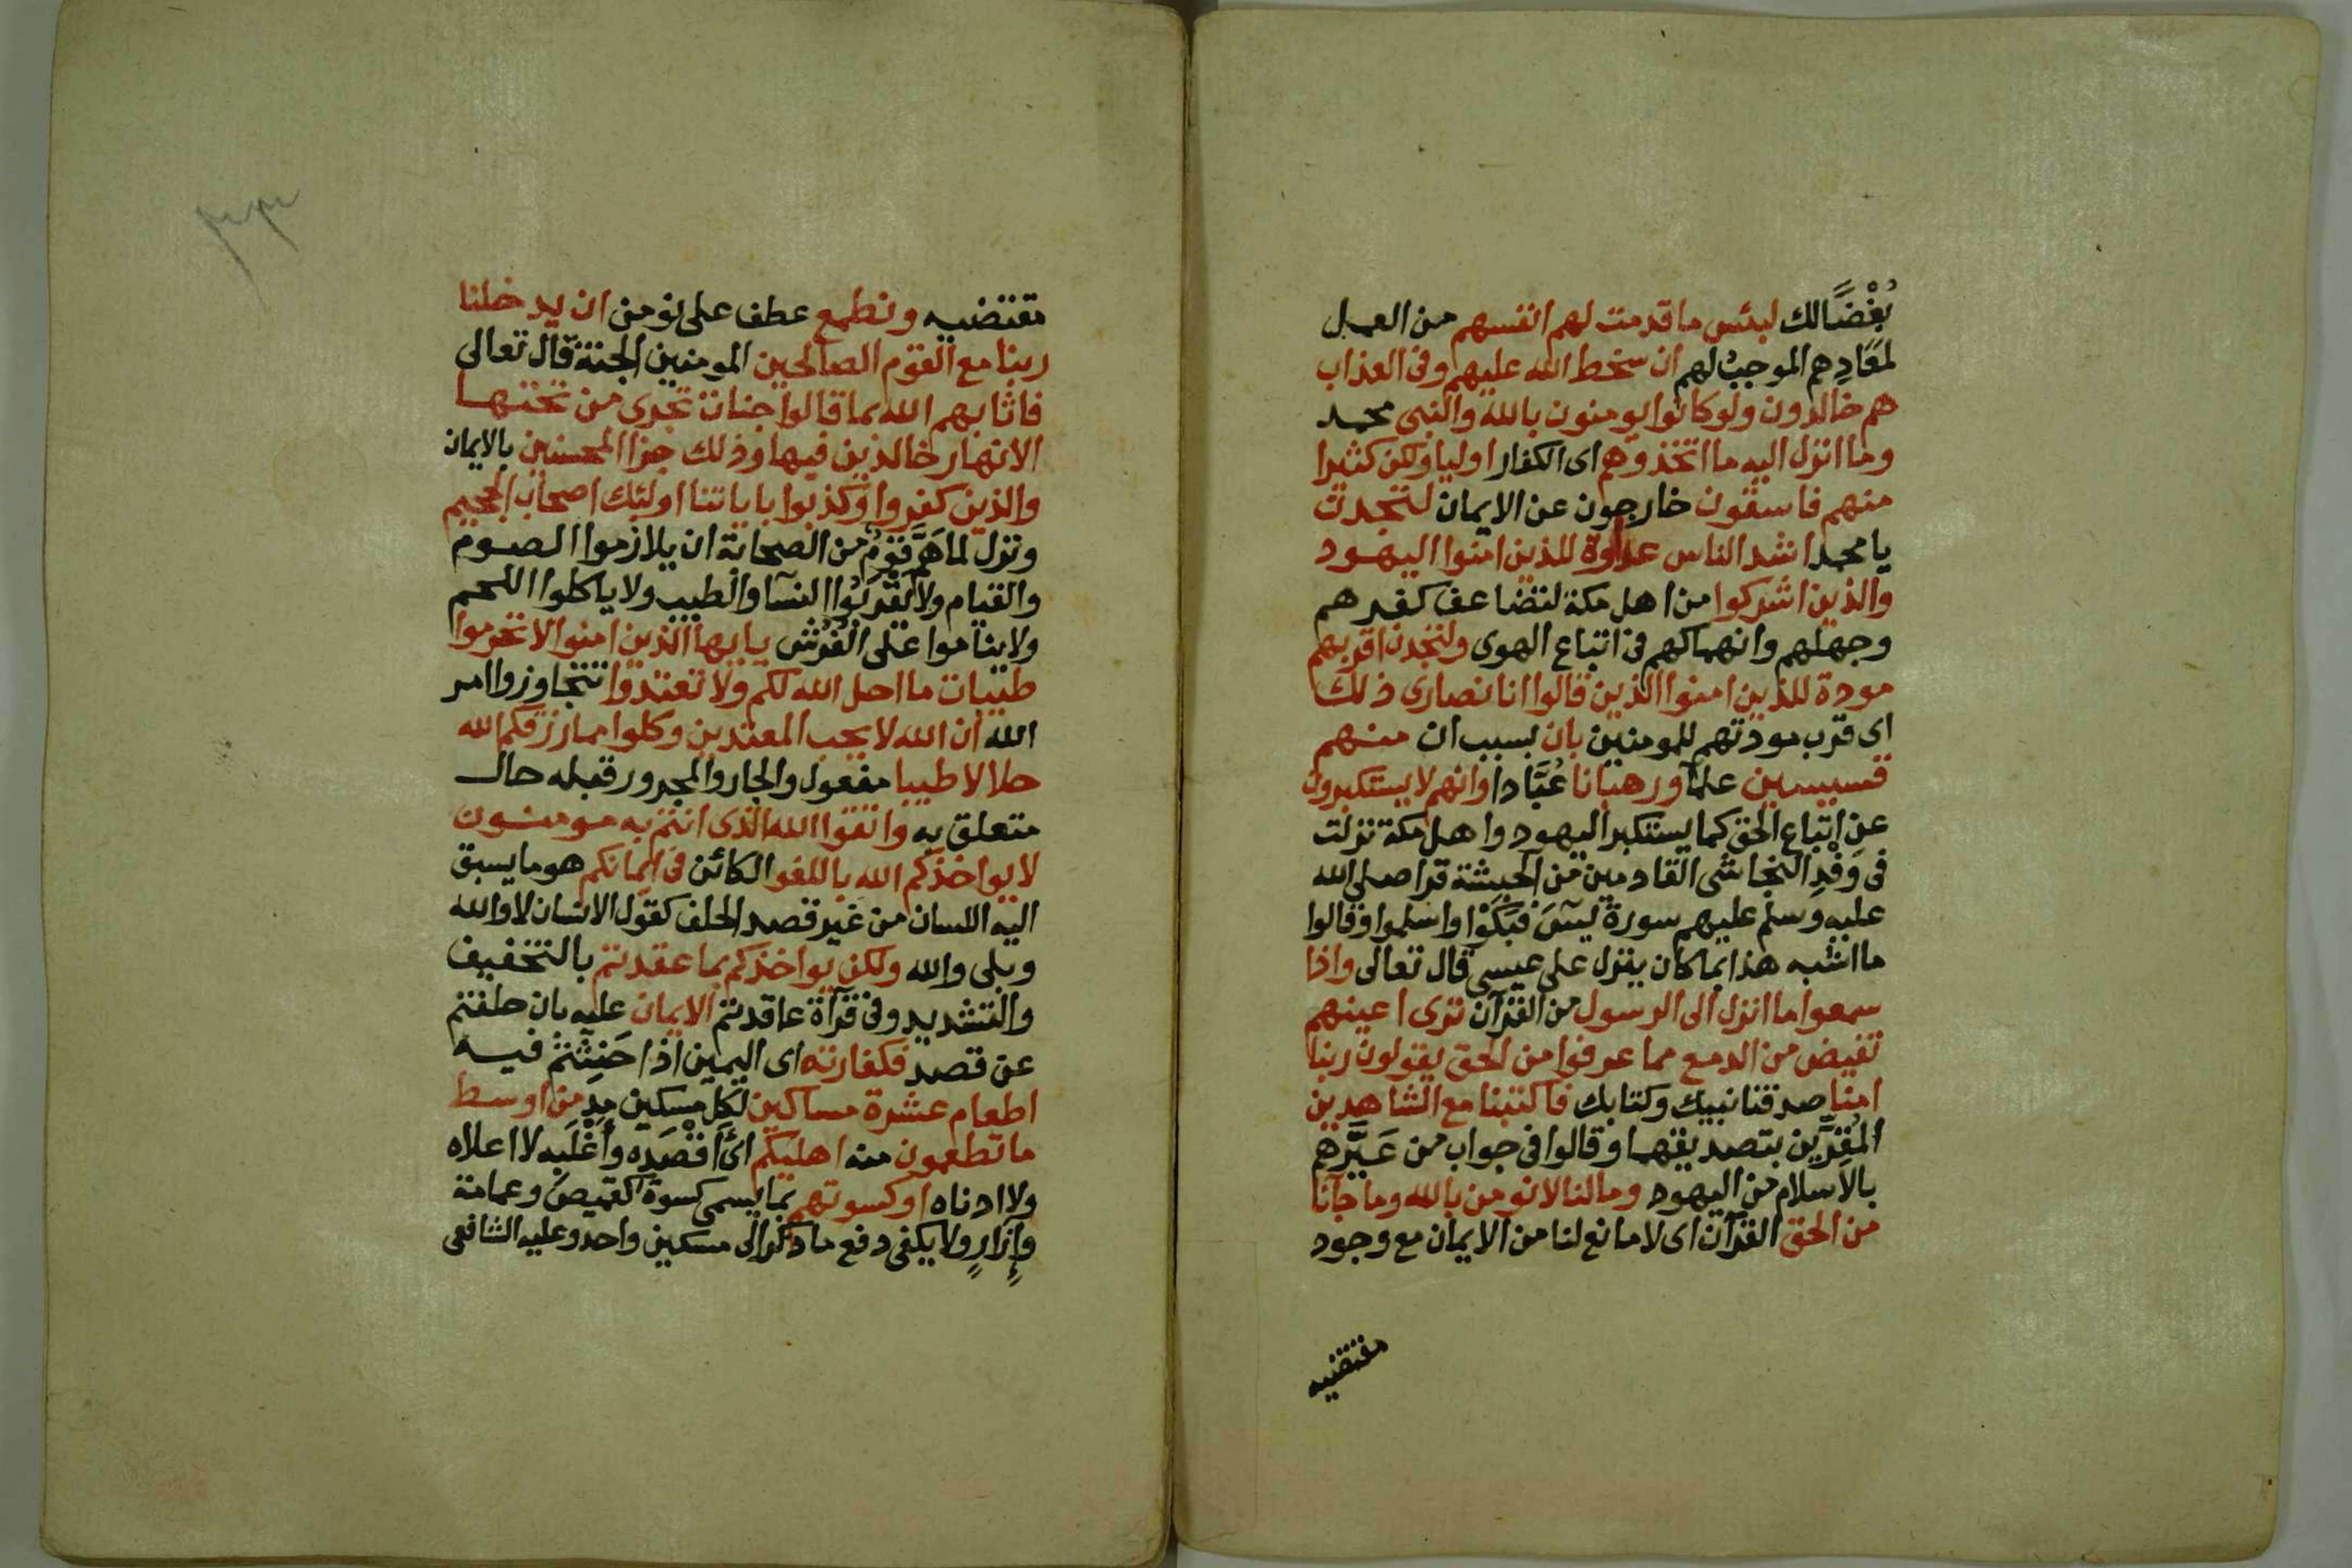 بُغْضًا لك لبئس ما قدمت لهم انفسهم من العمل
لمَعَادِهم الموجبُ لهم ان سخط الله عليهم وفى العذاب
هم خالدون ولو كانوا يومنون بالله والنبى محمد
وما انزل اليه ما اتخذوهم اى الكفار اوليا ولكن كثيرا
منهم فاسقون خارجون عن الايمان لتجدن
يا محمد اشد الناس عداوة للذين امنوا اليهود
والذين اشركوا من اهل مكة لتضاعف كفرهم
وجهلهم وانهماكهم فى اتباع الهوى ولتجدن اقربهم
مودة للذين امنوا الذين قالوا انا نصارى ذلك
اى قرب مودتهم للمومنين بان بسبب ان منهم
قسيسين علمآ ورهبانا عُبَّادا وانهم لا يستكبرون
عن اتباع الحق كما يستكبر اليهود واهل مكة نزلت
فى وَفْدِ النجاشى القادمين من الحبشة قرا صلى الله
عليه وسلم عليهم سورة يسَ فبَكَوْا واسلموا وقالوا
ما اشبه هذا بما كان ينزل على عيسى قال تعالى واذا
سمعوا ما انزل الى الرسول من القرآن ترى اعينهم
تفيض من الدمع مما عرفوا من الحق يقولون ربنا
امنا صدقنا نبيك وكتابك فاكتبنا مع الشاهدين
المُقِرِّين بتصديقهما وقالوا فى جواب من عَيَّرهم
بالاسلام من اليهود وما لنا لا نومن بالله وما جآنا
من الحق القرآن اى لا مانع لنا من الايمان مع وجود
مقتضيه
مقتضيه ونطمع عطف على نومن ان يدخلنا
ربنا مع القوم الصالحين المومنين الجنة قال تعالى
فاثابهم الله بما قالوا جنات تجرى من تحتها
الانهار خالدين فيها وذلك جزا المحسنين بالايمان
والذين كفروا وكذبوا باياتنا اولئك اصحاب الجحيم
ونزل لما هَمَّ قومٌ من الصحابة ان يلازموا الصوم
والقيام ولا يَقْرَبُوا النسآ والطيب ولا ياكلوا اللحم
ولا يناموا على الفُرُش يا ايها الذين امنوا لا تحرموا
طيبات ما احل الله لكم ولا تعتدوا تتجاوزوا امر
الله ان الله لا يحب المعتدين وكلوا مما رزقكم الله
حلالا طيبا مفعول والجار والمجرور قبله حال
متعلق به واتقوا الله الذى انتم به مومنون
لا يواخذكم الله باللغو الكائن فى ايمانكم هو ما يسبق
اليه اللسان من غير قصد الحلف كقول الانسان لا والله
وبلى والله ولكن يواخذكم بما عقدتم بالتخفيف
والتشديد وفى قرآة عاقدتم الايمان عليه بان حلفتم
عن قصد فكفارته اى اليمين اذا حَنِثْتُمْ فيه
اطعام عشرة مساكين لكل مسكين مد من اوسط
ما تطعمون منه اهليكم اى اَقْصَدِه وأَغْلَبِه لا اعلاه
ولا ادناه او كسوتهم بما يسمى كسوة كقميص وعمامة
وإزارٍ ولا يكفى دفع ما ذكر الى مسكين واحد وعليه الشافعى